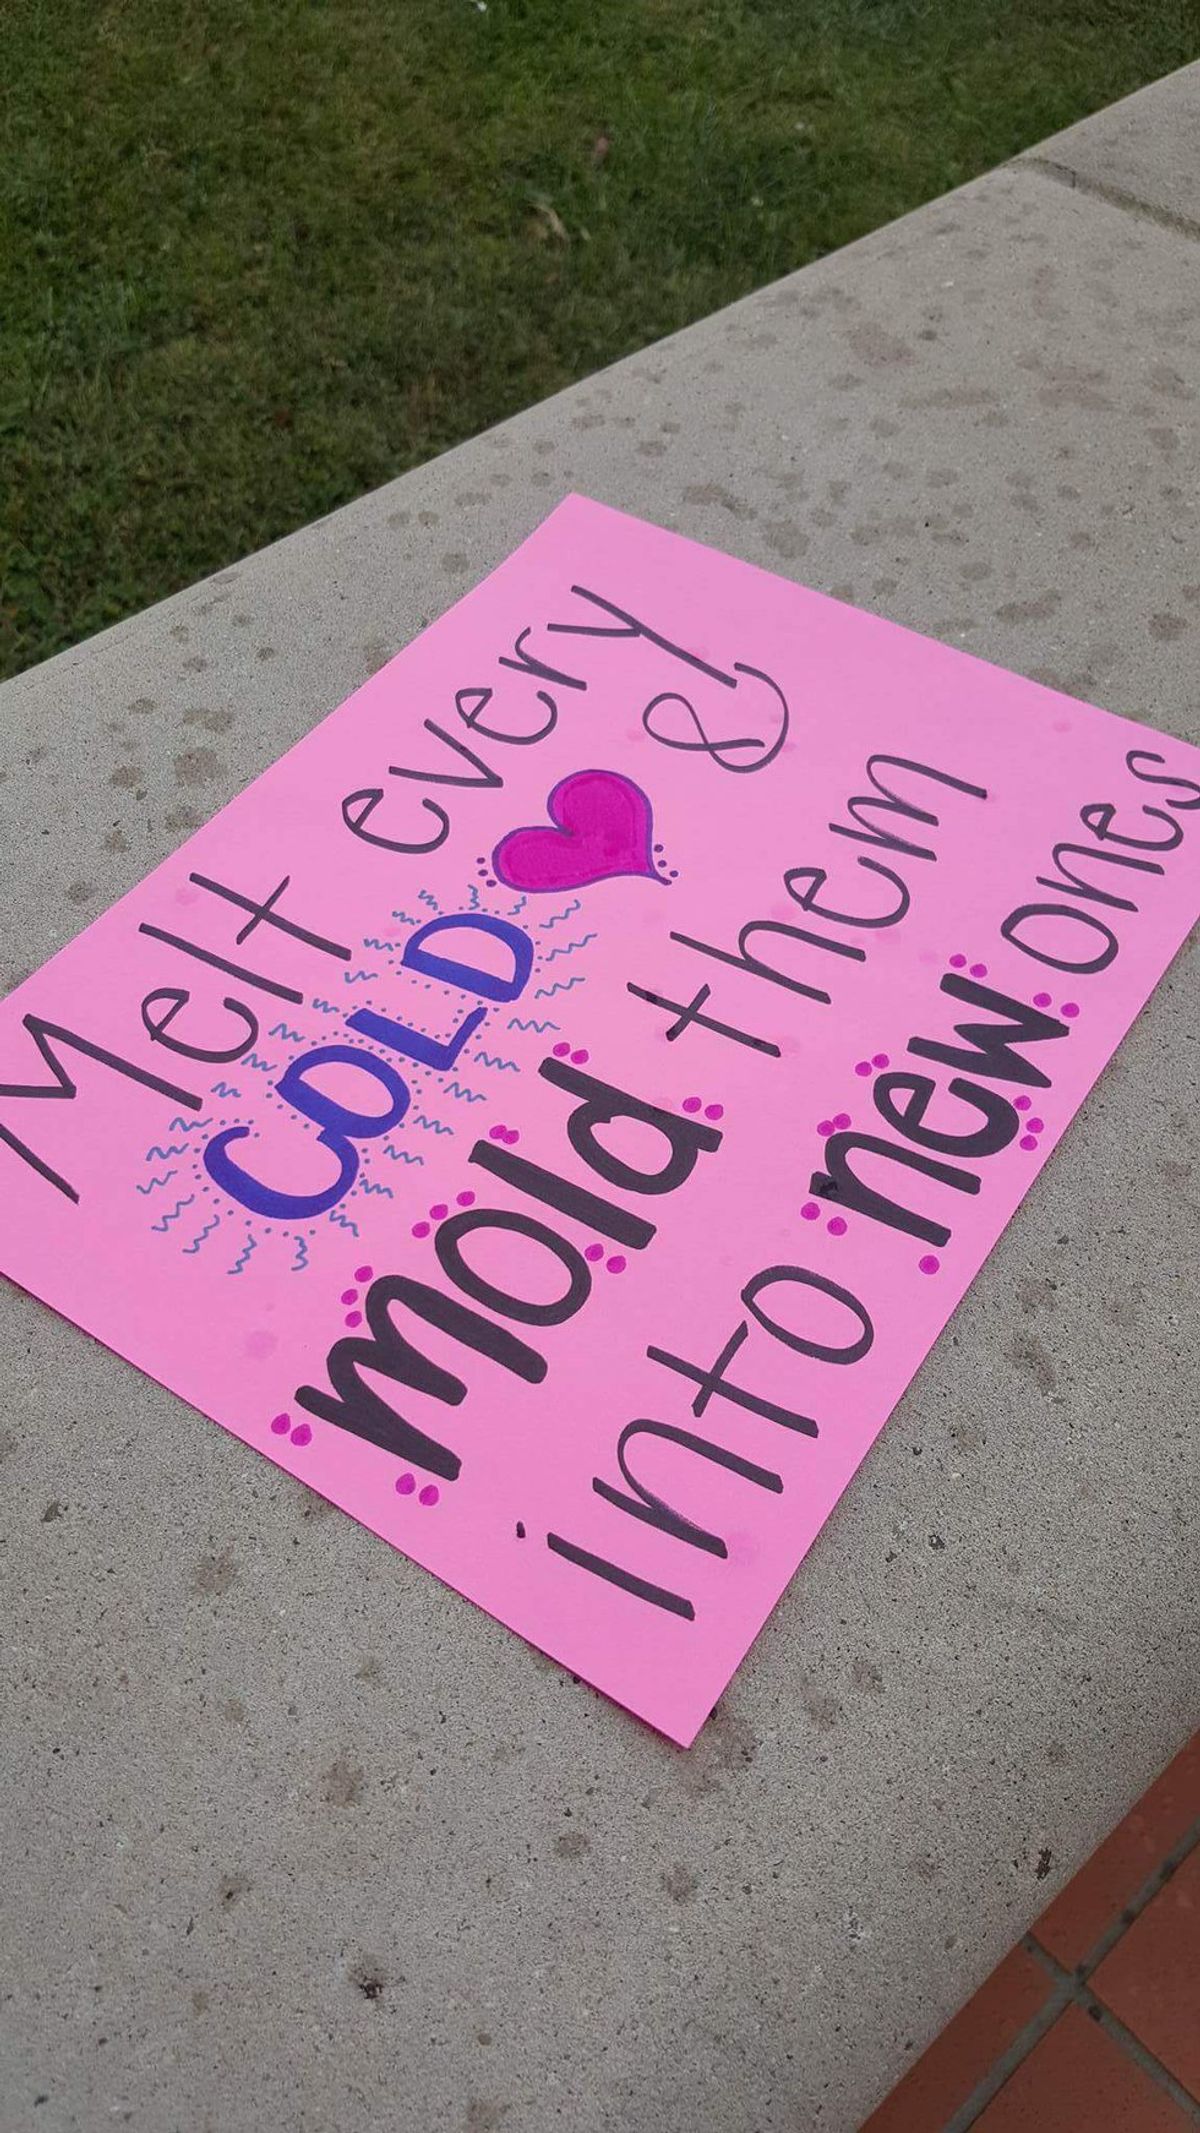 Melt every
COLD &
mold them
into new ones